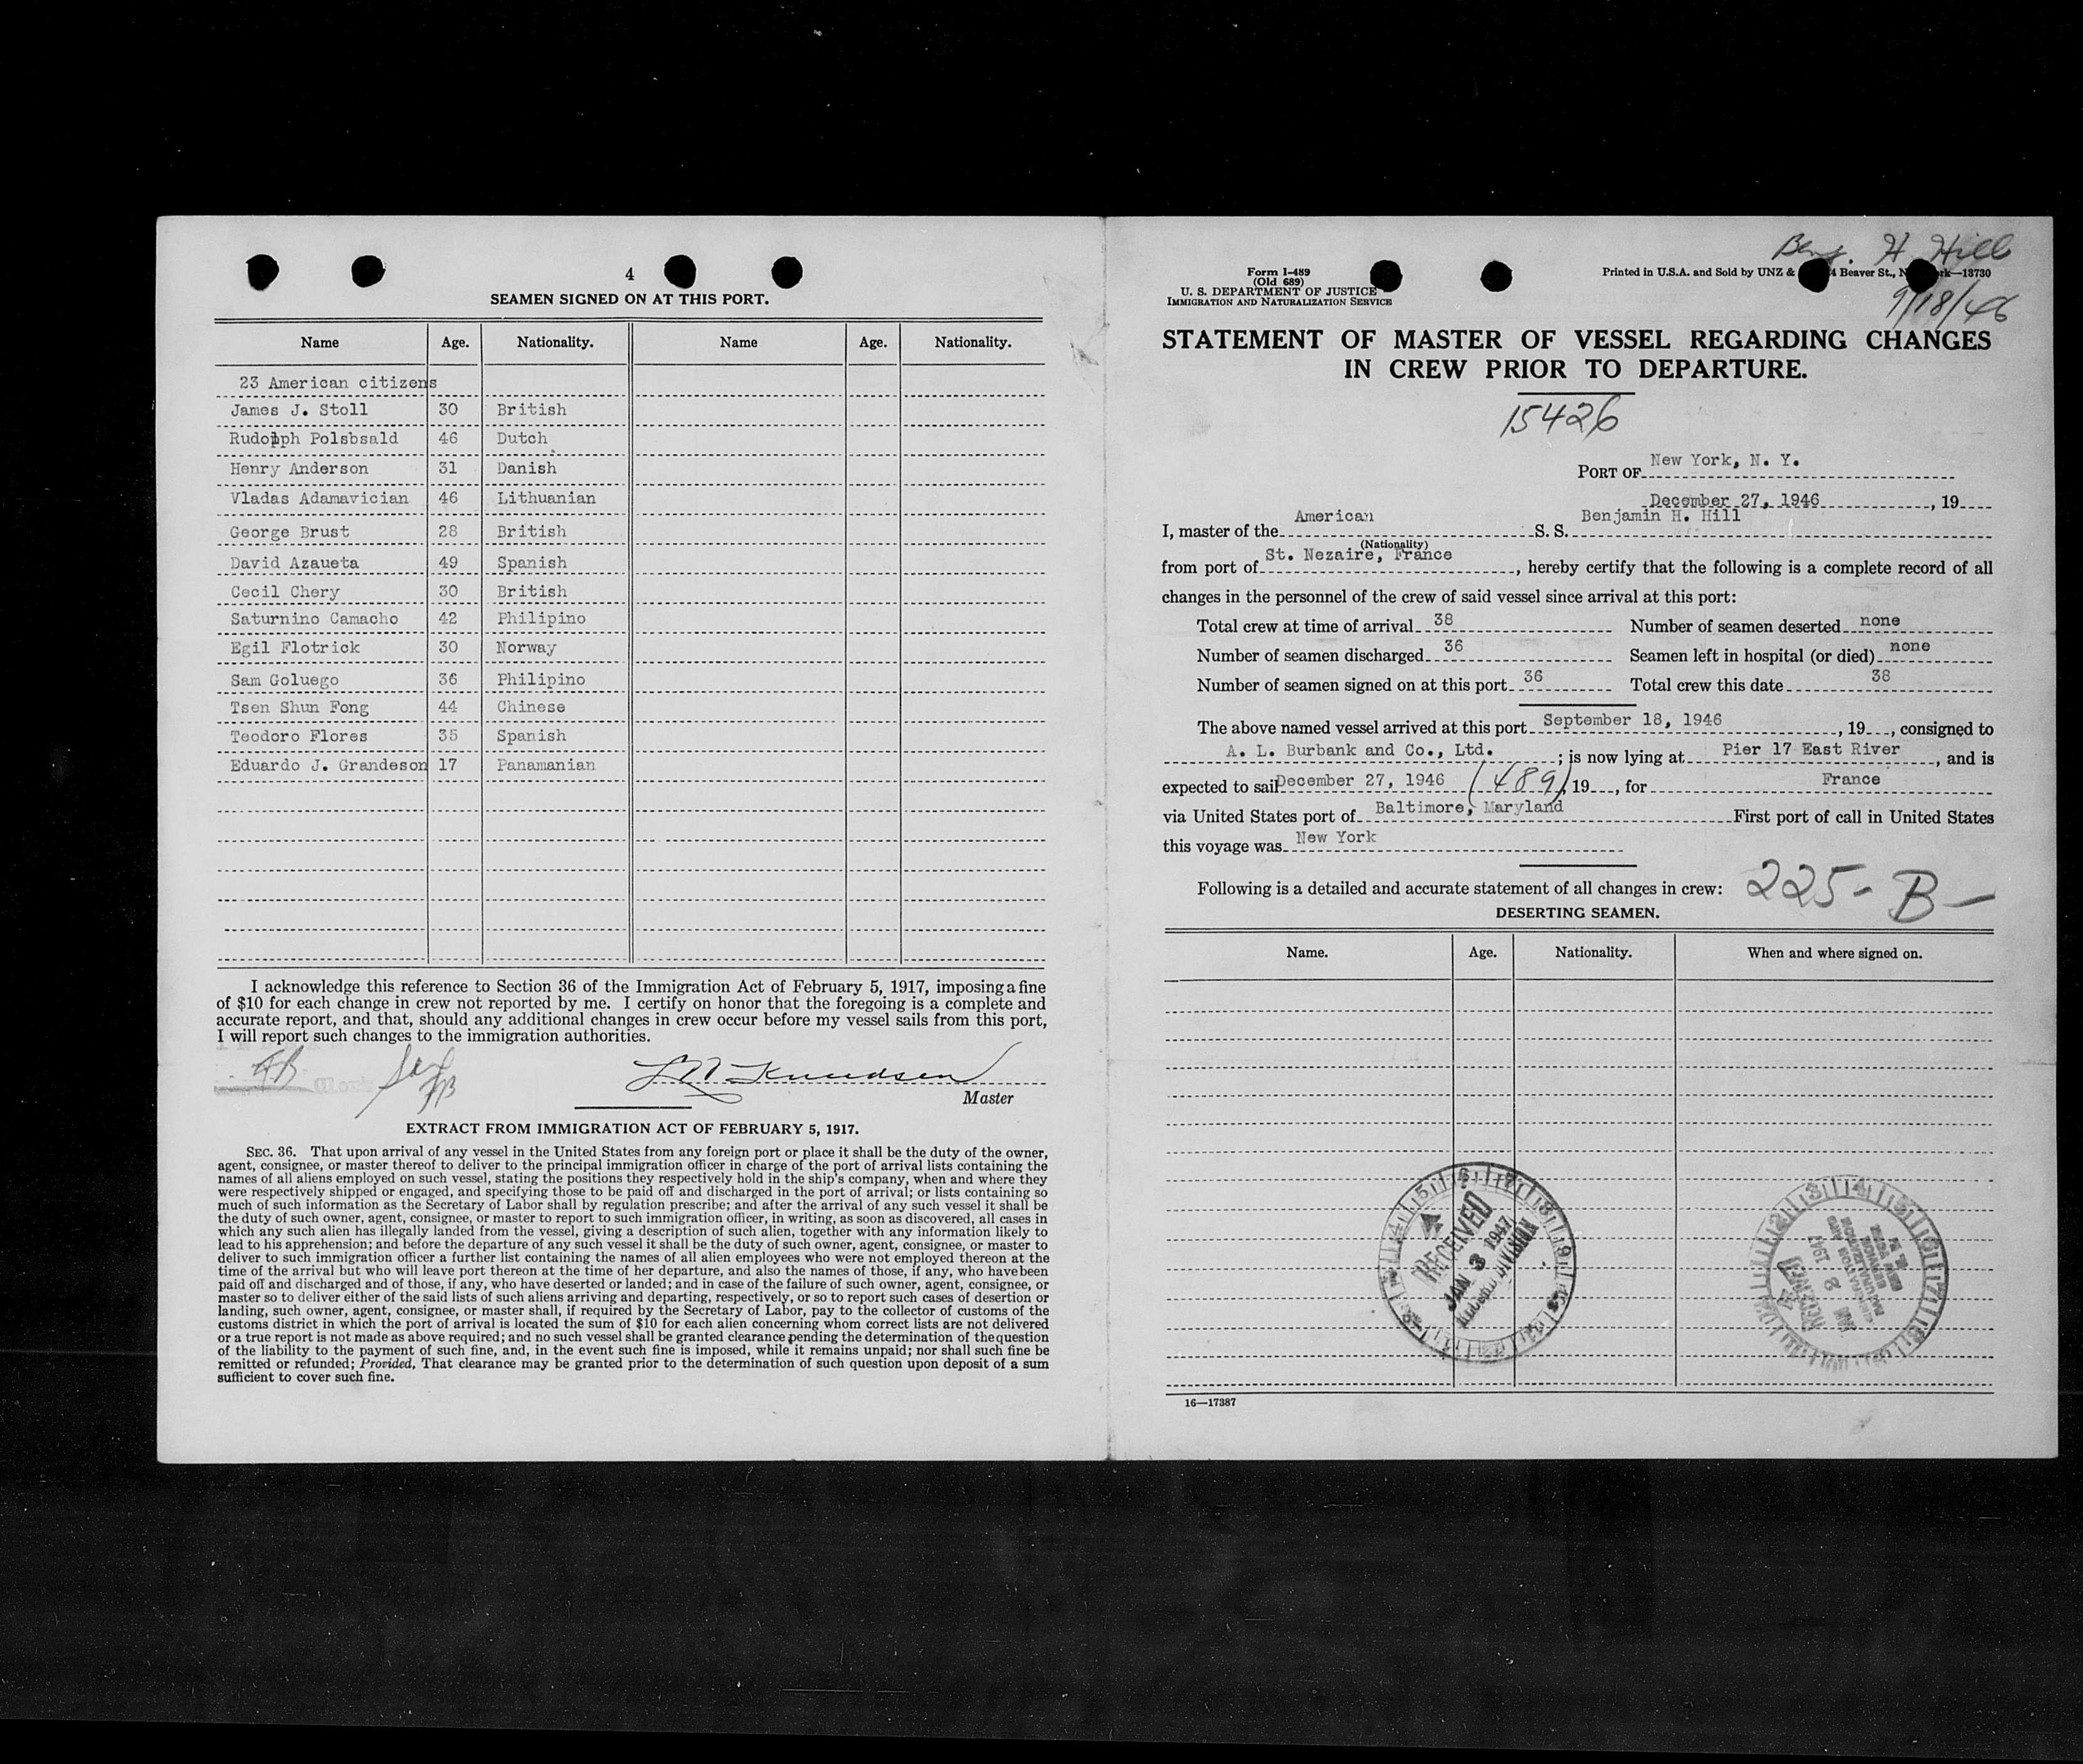 4
SEAMEN SIGNED ON AT THIS PORT.
Name Age. Nationality. Name Age. Nationality.
23 American citizens
James J. Stoll 30 British
Rudolph Polsbsald 46 Dutch
Henry Anderson 31 Danish
Vladas Adamavician 46 Lithuanian
George Brust 28 British
David Azaueta 49 Spanish
Cecil Chery 30 British
Saturnino Camacho 42 Philipino
Egil Flotrick 30 Norway
Sam Goluego 36 Philipino
Tsen Shun Fong 44 Chinese
Teodoro Flores 35 Spanish
Eduardo J. Grandeson 17 Panamanian
I acknowledge this reference to Section 36 of the Immigration Act of February 5, 1917, imposing a fine
of $10 for each change in crew not reported by me. I certify on honor that the foregoing is a complete and
accurate report, and that, should any additional changes in crew occur before my vessel sails from this port,
I will report such changes to the immigration authorities.
Knudsen
Master
EXTRACT FROM IMMIGRATION ACT OF FEBRUARY 5, 1917.
SEC. 36. That upon arrival of any vessel in the United States from any foreign port or place it shall be the duty of the owner,
agent, consignee, or master thereof to deliver to the principal immigration officer in charge of the port of arrival lists containing the
names of all aliens employed on such vessel, stating the positions they respectively hold in the ship's company, when and where they
were respectively shipped or engaged, and specifying those to be paid off and discharged in the port of arrival; or lists containing so
much of such information as the Secretary of Labor shall by regulation prescribe; and after the arrival of any such vessel it shall be
the duty of such owner, agent, consignee, or master to report to such immigration officer, in writing, as soon as discovered, all cases in
which any such alien has illegally landed from the vessel, giving a description of such alien, together with any information likely to
lead to his apprehension; and before the departure of any such vessel it shall be the duty of such owner, agent, consignee, or master to
deliver to such immigration officer a further list containing the names of all alien employees who were not employed thereon at the
time of the arrival but who will leave port thereon at the time of her departure, and also the names of those, if any, who have been
paid off and discharged and of those, if any, who have deserted or landed; and in case of the failure of such owner, agent, consignee, or
master so to deliver either of the said lists of such aliens arriving and departing, respectively, or so to report such cases of desertion or
landing, such owner, agent, consignee, or master shall, if required by the Secretary of Labor, pay to the collector of customs of the
customs district in which the port of arrival is located the sum of $10 for each alien concerning whom correct lists are not delivered
or a true report is not made as above required; and no such vessel shall be granted clearance pending the determination of the question
of the liability to the payment of such fine, and, in the event such fine is imposed, while it remains unpaid; nor shall such fine be
remitted or refunded; Provided, That clearance may be granted prior to the determination of such question upon deposit of a sum
sufficient to cover such fine.
Benj. H. Hill
9/18/46
Form I-489
(Old 689)
U. S. DEPARTMENT OF JUSTICE
IMMIGRATION AND NATURALIZATION SERVICE
Printed in U.S.A. and Sold by UNZ & 4 Beaver St., N rk—13730
STATEMENT OF MASTER OF VESSEL REGARDING CHANGES
IN CREW PRIOR TO DEPARTURE.
15426
PORT OF New York, N. Y.
December 27, 1946, 19
I, master of the American S. S. Benjamin H. Hill
(Nationality)
from port of St. Nezaire, France, hereby certify that the following is a complete record of all
changes in the personnel of the crew of said vessel since arrival at this port:
Total crew at time of arrival 38 Number of seamen deserted none
Number of seamen discharged 36 Seamen left in hospital (or died) none
Number of seamen signed on at this port 36 Total crew this date 38
The above named vessel arrived at this port September 18, 1946, 19, consigned to
A. L. Burbank and Co., Ltd. ; is now lying at Pier 17 East River, and is
expected to sail December 27, 1946 (489), 19, for France
via United States port of Baltimore, Maryland First port of call in United States
this voyage was New York
Following is a detailed and accurate statement of all changes in crew: 225-B-
DESERTING SEAMEN.
Name. Age. Nationality. When and where signed on.
RECEIVED
JAN 3 1947
RECORD DIVISION
RECEIVED
JAN 2 1947
16—17387